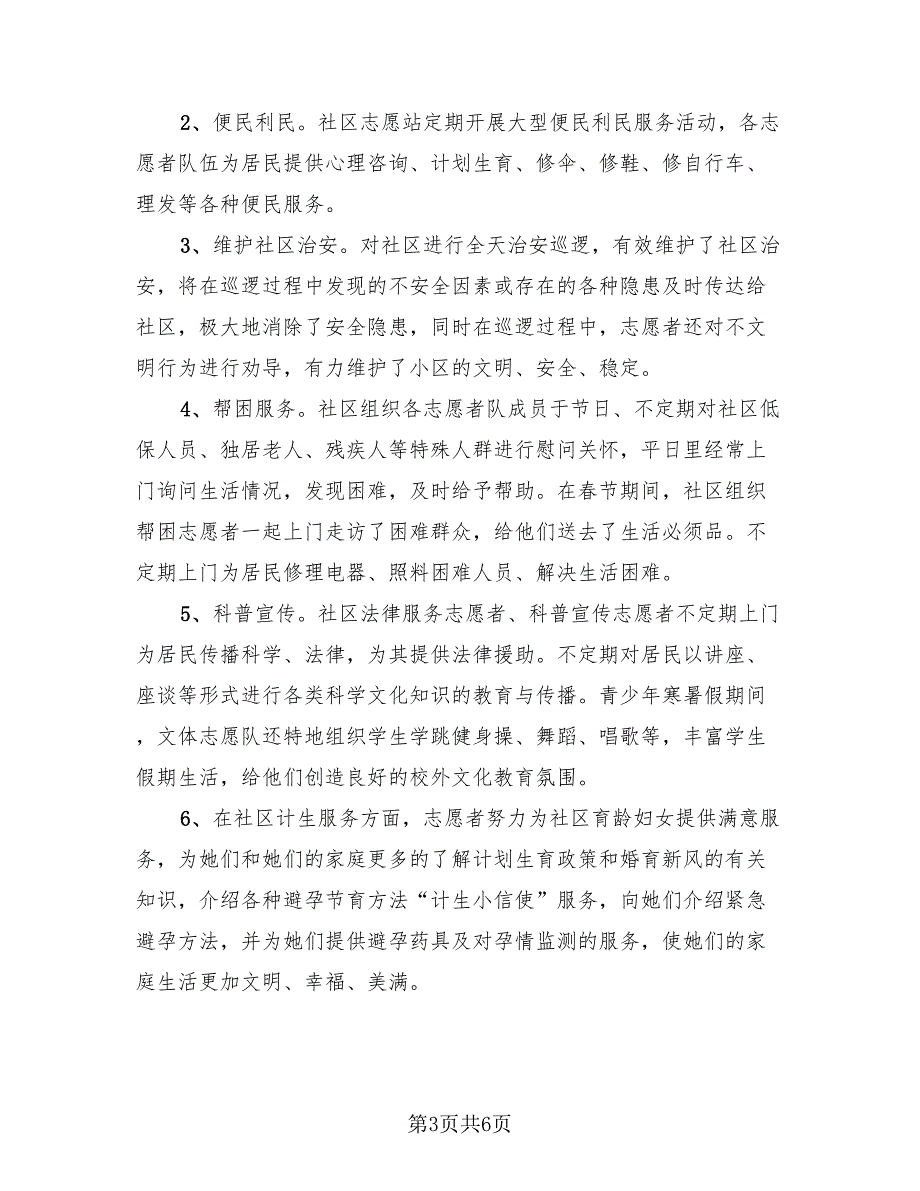 2、便民利民。社区志愿站定期开展大型便民利民服务活动，各志
愿者队伍为居民提供心理咨询、计划生育、修伞、修鞋、修自行车、
理发等各种便民服务。
3、维护社区治安。对社区进行全天治安巡逻，有效维护了社区治
安，将在巡逻过程中发现的不安全因素或存在的各种隐患及时传达给
社区，极大地消除了安全隐患，同时在巡逻过程中，志愿者还对不文
明行为进行劝导，有力维护了小区的文明、安全、稳定。
4、帮困服务。社区组织各志愿者队成员于节日、不定期对社区低
保人员、独居老人、残疾人等特殊人群进行慰问关怀，平日里经常上
门询问生活情况，发现困难，及时给予帮助。在春节期间，社区组织
帮困志愿者一起上门走访了困难群众，给他们送去了生活必须品。不
定期上门为居民修理电器、照料困难人员、解决生活困难。
5、科普宣传。社区法律服务志愿者、科普宣传志愿者不定期上门
为居民传播科学、法律，为其提供法律援助。不定期对居民以讲座、
座谈等形式进行各类科学文化知识的教育与传播。青少年寒暑假期间
，文体志愿队还特地组织学生学跳健身操、舞蹈、唱歌等，丰富学生
假期生活，给他们创造良好的校外文化教育氛围。
6、在社区计生服务方面，志愿者努力为社区育龄妇女提供满意服
务，为她们和她们的家庭更多的了解计划生育政策和婚育新风的有关
知识，介绍各种避孕节育方法“计生小信使”服务，向她们介绍紧急
避孕方法，并为她们提供避孕药具及对孕情监测的服务，使她们的家
庭生活更加文明、幸福、美满。
第3页共6页